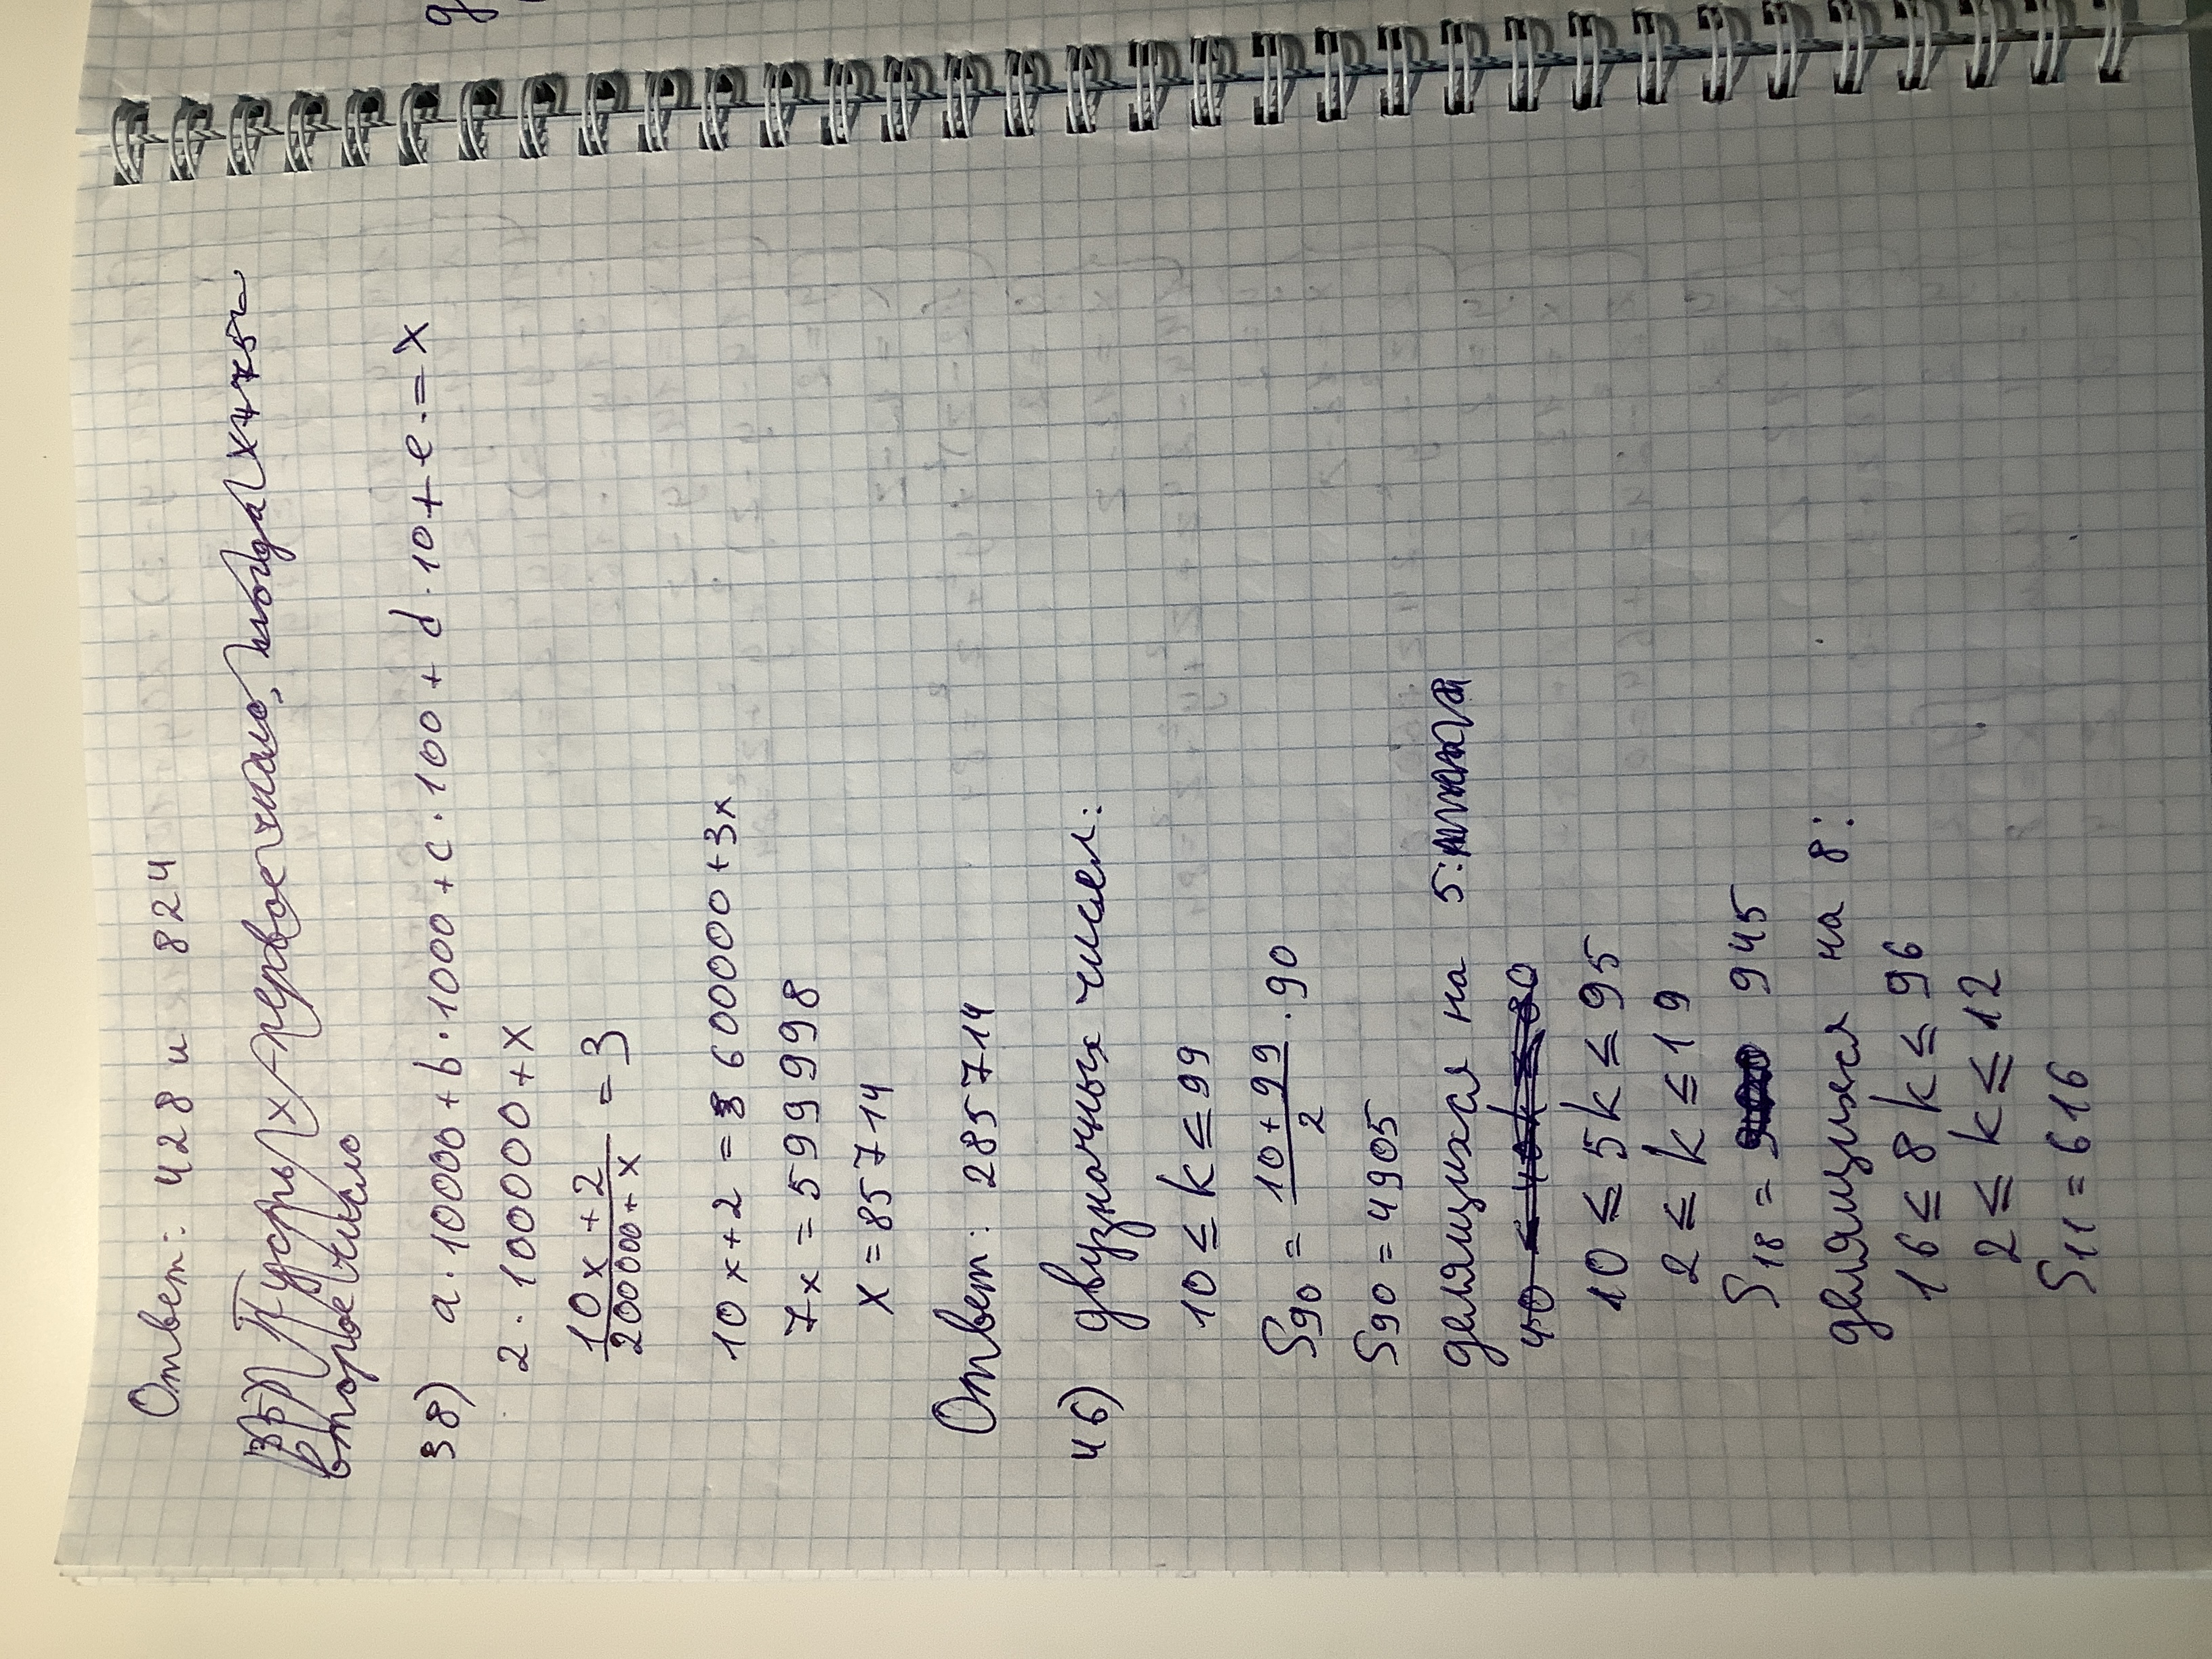 Ответ: 428 и 824
35) Пусть x - первое число, тогда x + 75 -
второе число
38) a · 10000 + b · 1000 + c · 100 + d · 10 + e = x
2 · 100000 + x
(10x + 2)/(200000 + x) = 3
10x + 2 = 600000 + 3x
7x = 599998
x = 85714
Ответ: 285714
46) двузначных чисел:
10 ≤ k ≤ 99
S90 = (10 + 99)/2 · 90
S90 = 4905
делящихся на 5:
40 ≤ 40k ≤ 80
10 ≤ 5k ≤ 95
2 ≤ k ≤ 19
S18 = 945
делящихся на 8:
16 ≤ 8k ≤ 96
2 ≤ k ≤ 12
S11 = 616